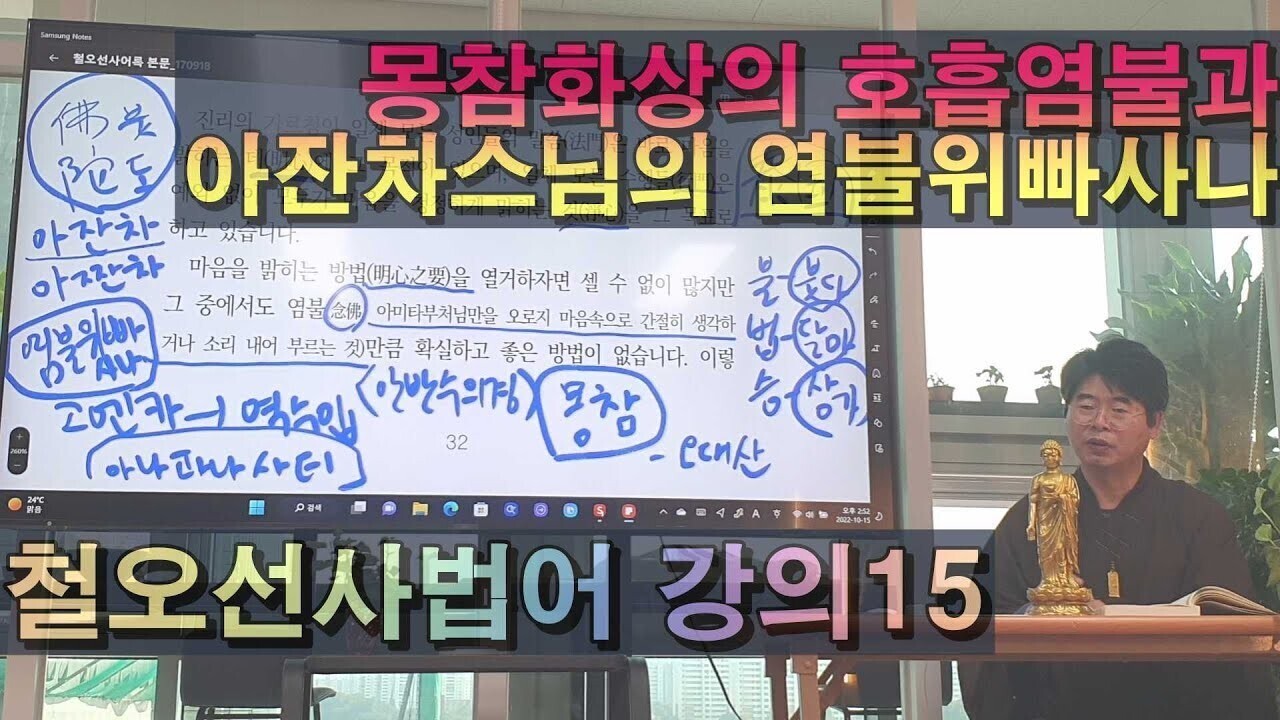 Samsung Notes
← 철오선사어록 본문_170918
몽참화상의 호흡염불과
아잔차스님의 염불위빠사나
佛 붓
陀 도
진리의
하고 있습니다.
아잔차
아짠차
염불위빠
사나
마음을 밝히는 방법(明心之要)을 열거하자면 셀 수 없이 많지만
그 중에서도 염불(念佛 아미타부처님만을 오로지 마음속으로 간절히 생각하
거나 소리 내어 부르는 것)만큼 확실하고 좋은 방법이 없습니다. 이렇
불-붓다
법-달마
승-상가
고엔카
(안반수의경)
몽참
-오대산
(아나파나사티)
32
260%
24°C
맑음
검색
오후 2:52
2022-10-15
철오선사법어 강의15